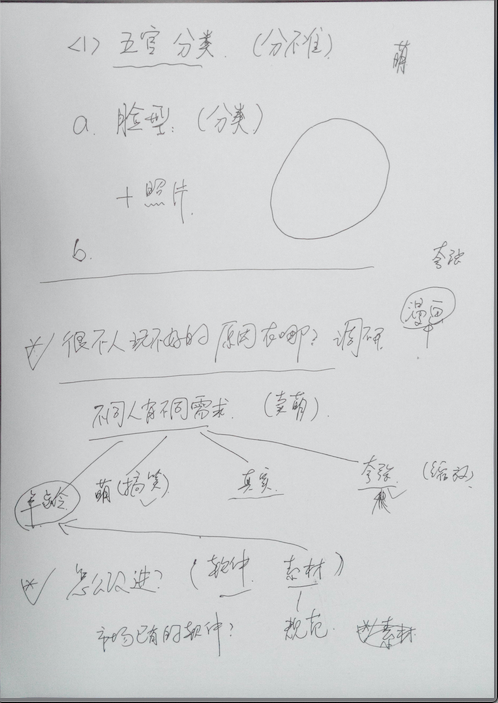 <1) 五官分类. (分不准) 萌
a. 脸型: (分类)
+ 照片.
b.
夸张
漫画
很不人玩不好的原因在哪? 调研
不同人有不同需求. (卖萌).
年龄 萌(搞笑) 真实 夸张 (缩放)
怎么改进? (软件. 素材)
市场已有的软件? 规范. 素材